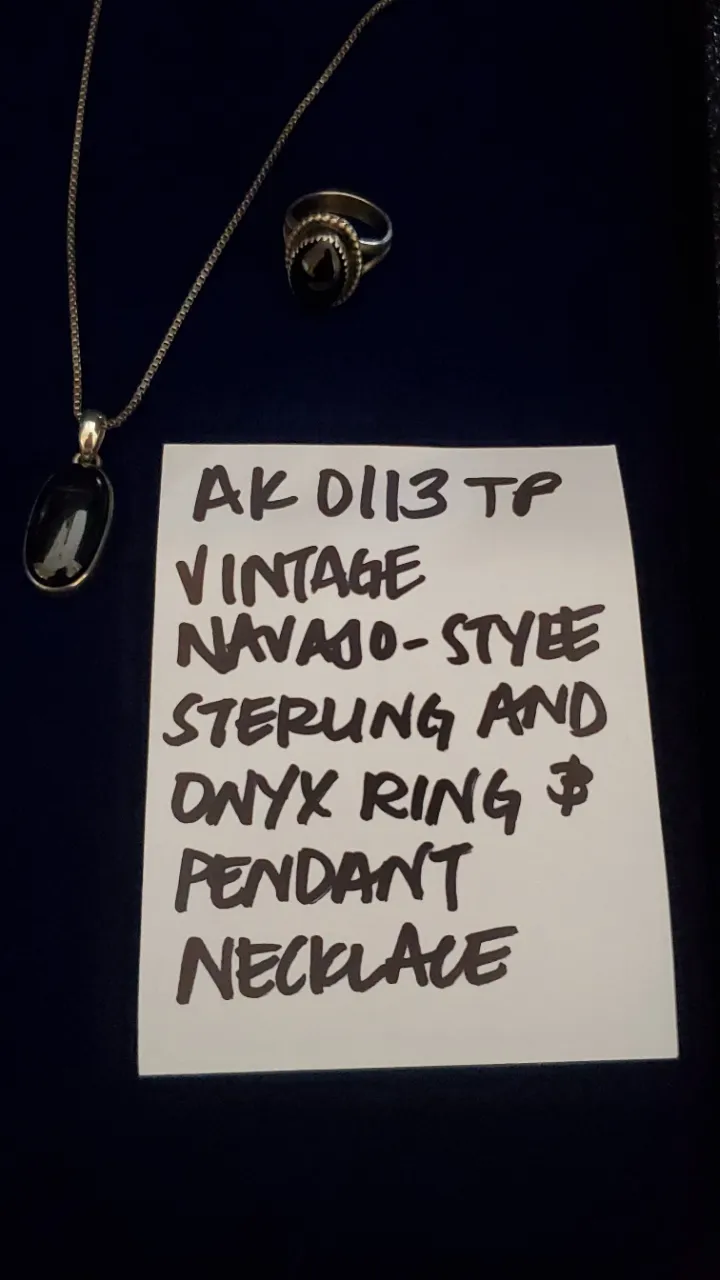 AK 0113 TP
VINTAGE
NAVAJO-STYLE
STERLING AND
ONYX RING &
PENDANT
NECKLACE